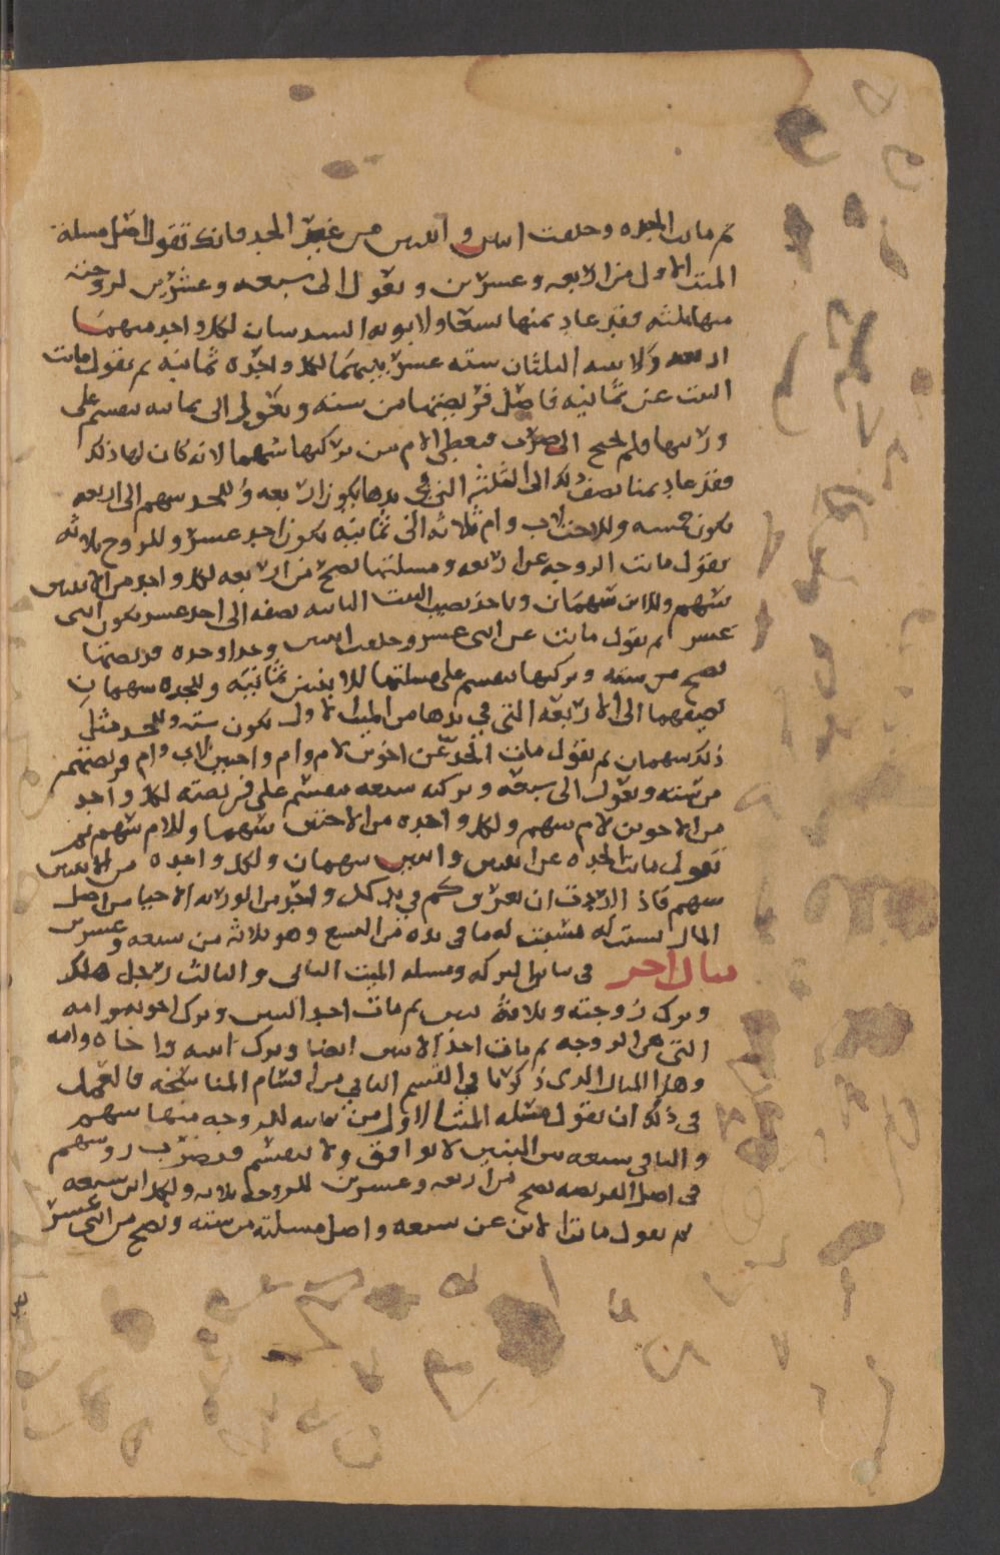 ثم ماتت الجده وخلفت ابنين وابنتين من غير الجد فانك تقول اصل مسلة
الميت الاول من اربعه وعشرين وتعول الى سبعه وعشرين لزوجته
منها ثلثه فقد عاد ثمنها تسعا ولابويه السدسان لكل واحد منهما
اربعه ولابنتيه الثلثان سته عشر بينهما لكل واحده ثمانيه ثم تقول ماتت
البنت عن ثمانيه فاصل فريضتها من سته وتعول الى ثمانيه تنقسم على
ورثتها فلم تحتج الى ضرب فتعطى الام من تركتها سهما لانه كان لها ذلك
فقد عاد ثمنا تضف ذلك الى الثلثه التي في يدها يكون اربعه وللجد سهم الى اربعه
يكون خمسه وللاخت لاب وام ثلاثه الى ثمانيه يكون احد عشر وللزوج ثلاثه
تقول ماتت الزوجه عن اربعه ومسلتها تصح من اربعه لكل واحد من الابنتين
سهم وللابن سهمان وياخذ نصيب البنت الثانيه تضفه الى احد عشر يكون اثنى
عشر ثم تقول ماتت عن اثنى عشر وخلفت ابنتين وجدا وجده فريضتها
تصح من سته وتركتها تنقسم على مسلتها للابنتين ثمانيه وللجده سهمان
تضيفهما الى الاربعه التي في يدها من الميت الاول يكون سته وللجد مثل
ذلك سهمان ثم تقول مات الجد عن اخوين لام وام واختين لاب وام فريضتهم
من سته وتعول الى سبعه وتركته سبعه تنقسم على فريضته لكل واحد
من الاخوين لام سهم ولكل واحده من الاختين سهما وللام سهم ثم
تقول ماتت الجده عن ابنتين وابنين سهمان ولكل واحده من الابنتين
سهم فاذا اردت ان تعرف كم في يد كل واحد من الورثه الاحيا من اصل
المال نسبت له فتثبت له ما في يده من التسع وهو ثلاثه من سبعه وعشرين
مثال اخر في بيان التركه ومسله الميت الثاني والثالث رجل هلك
وترك زوجته وثلاثة بنين ثم مات احد البنين وترك اخويه وامه
التي هي الزوجه ثم مات احد الابنين ايضا وترك ابنه واخاه وامه
وهذا المثال الذي ذكرنا في القسم الثاني من اقسام المناسخه فالعمل
في ذلك ان تقول مسله الميت الاول من ثمانيه للزوجه منها سهم
والباقي سبعه بين البنين لا توافق ولا تنقسم فتضرب روسهم
في اصل الفريضه تصح من اربعه وعشرين للزوجه ثلاثه ولكل ابن سبعه
ثم تقول مات الابن عن سبعه واصل مسلته من سته وتصح من اثنى عشر